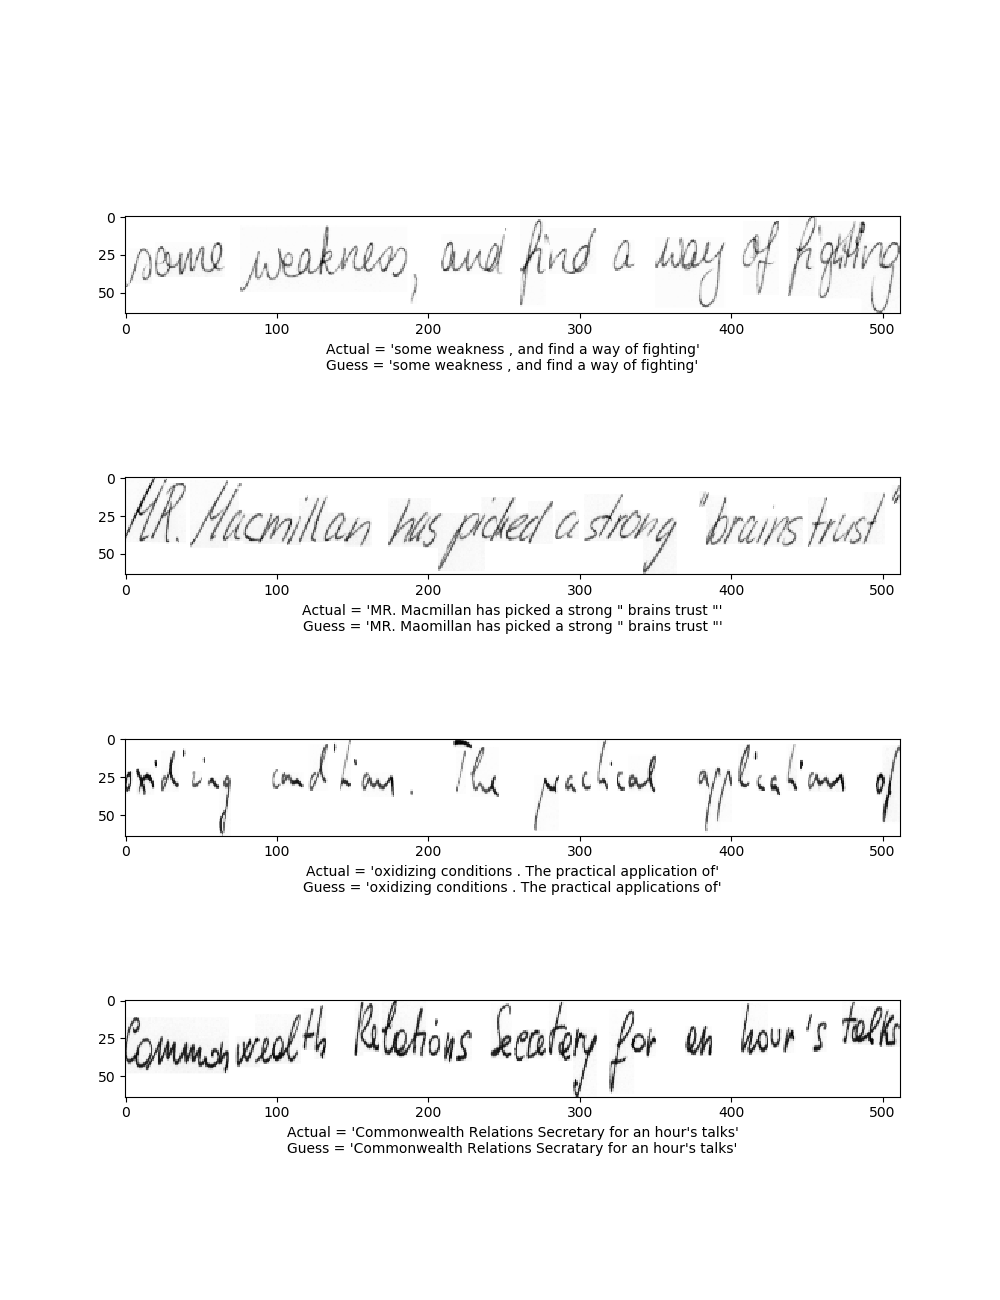 0
25
50
some weakness, and find a way of fighting
0 100 200 300 400 500
Actual = 'some weakness , and find a way of fighting'
Guess = 'some weakness , and find a way of fighting'
0
25
50
MR. Macmillan has picked a strong "brains trust"
0 100 200 300 400 500
Actual = 'MR. Macmillan has picked a strong " brains trust "'
Guess = 'MR. Maomillan has picked a strong " brains trust "'
0
25
50
oxidizing condition. The practical application of
0 100 200 300 400 500
Actual = 'oxidizing conditions . The practical application of'
Guess = 'oxidizing conditions . The practical applications of'
0
25
50
Commonwealth Relations Secretary for an hour's talks
0 100 200 300 400 500
Actual = 'Commonwealth Relations Secretary for an hour's talks'
Guess = 'Commonwealth Relations Secratary for an hour's talks'